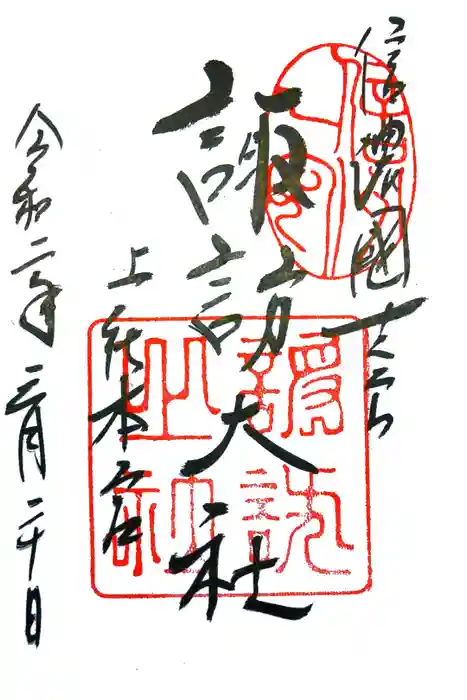 信濃國一之宮
諏訪大社
上社本宮
令和二年三月二十日